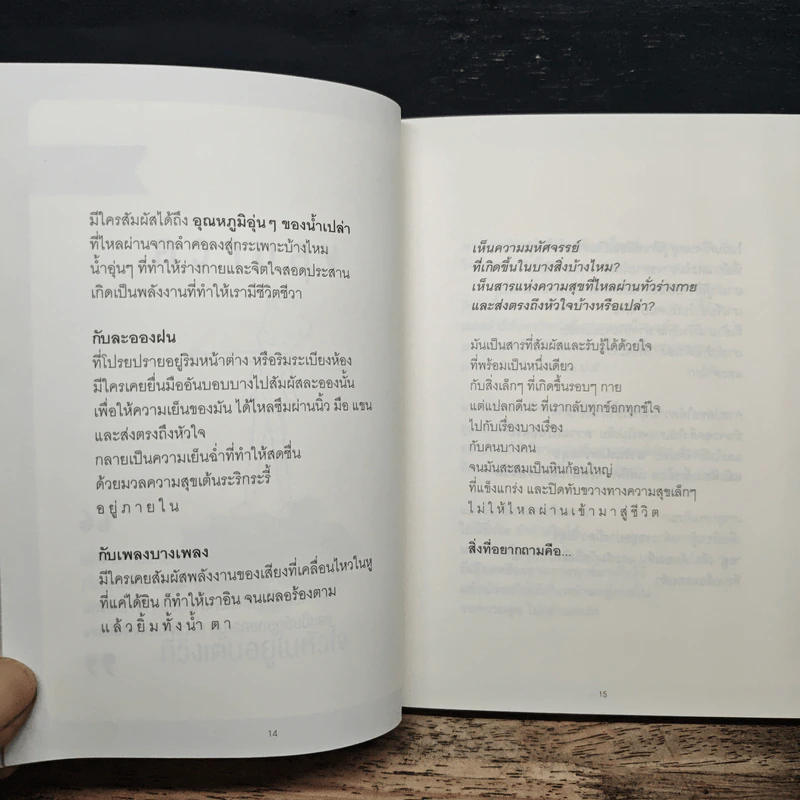 มีใครสัมผัสได้ถึง อุณหภูมิอุ่นๆ ของน้ำเปล่า
ที่ไหลผ่านจากลำคอลงสู่กระเพาะบ้างไหม
น้ำอุ่นๆ ที่ทำให้ร่างกายและจิตใจสอดประสาน
เกิดเป็นพลังงานที่ทำให้เรามีชีวิตชีวา
กับละอองฝน
ที่โปรยปรายอยู่ริมหน้าต่าง หรือริมระเบียงห้อง
มีใครเคยยื่นมืออันบอบบางไปสัมผัสละอองนั้น
เพื่อให้ความเย็นของมัน ได้ไหลซึมผ่านนิ้ว มือ แขน
และส่งตรงถึงหัวใจ
กลายเป็นความเย็นฉ่ำที่ทำให้สดชื่น
ด้วยมวลความสุขเต้นระริกระรี้
อ ยู่ ภ า ย ใ น
กับเพลงบางเพลง
มีใครเคยสัมผัสพลังงานของเสียงที่เคลื่อนไหวในหู
ที่แค่ได้ยิน ก็ทำให้เราอิน จนเผลอร้องตาม
แ ล้ ว ยิ้ ม ทั้ ง น้ำ ต า
14
เห็นความมหัศจรรย์
ที่เกิดขึ้นในบางสิ่งบ้างไหม?
เห็นสารแห่งความสุขที่ไหลผ่านทั่วร่างกาย
และส่งตรงถึงหัวใจบ้างหรือเปล่า?
มันเป็นสารที่สัมผัสและรับรู้ได้ด้วยใจ
ที่พร้อมเป็นหนึ่งเดียว
กับสิ่งเล็กๆ ที่เกิดขึ้นรอบๆ กาย
แต่แปลกดีนะ ที่เรากลับทุกข์อกทุกข์ใจ
ไปกับเรื่องบางเรื่อง
กับคนบางคน
จนมันสะสมเป็นหินก้อนใหญ่
ที่แข็งแกร่ง และปิดทับขวางทางความสุขเล็กๆ
ไ ม่ ใ ห้ ไ ห ล ผ่ า น เ ข้ า ม า สู่ ชี วิ ต
สิ่งที่อยากถามคือ...
15